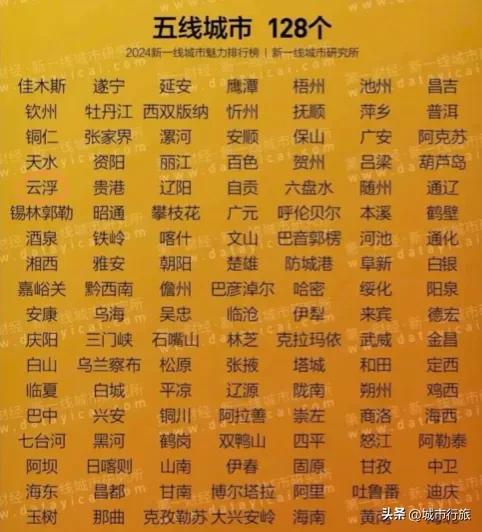 五线城市 128个
2024新一线城市魅力排行榜 | 新一线城市研究所
佳木斯 遂宁 延安 鹰潭 梧州 池州 昌吉
钦州 牡丹江 西双版纳 忻州 抚顺 萍乡 普洱
铜仁 张家界 漯河 安顺 保山 广安 阿克苏
天水 资阳 丽江 百色 贺州 吕梁 葫芦岛
云浮 贵港 辽阳 自贡 六盘水 随州 通辽
锡林郭勒 昭通 攀枝花 广元 呼伦贝尔 本溪 鹤壁
酒泉 铁岭 喀什 文山 巴音郭楞 河池 通化
湘西 雅安 朝阳 楚雄 防城港 阜新 白银
嘉峪关 黔西南 儋州 巴彦淖尔 哈密 绥化 阳泉
安康 乌海 吴忠 临沧 伊犁 来宾 德宏
庆阳 三门峡 石嘴山 林芝 克拉玛依 武威 金昌
白山 乌兰察布 松原 张掖 塔城 和田 定西
临夏 白城 平凉 辽源 陇南 朔州 鸡西
巴中 兴安 铜川 阿拉善 崇左 商洛 海西
七台河 黑河 鹤岗 双鸭山 四平 怒江 阿勒泰
阿坝 日喀则 山南 伊春 固原 甘孜 中卫
海东 昌都 甘南 博尔塔拉 阿里 吐鲁番 迪庆
玉树 那曲 克孜勒苏 大兴安岭 海南 黄
头条 @城市行旅